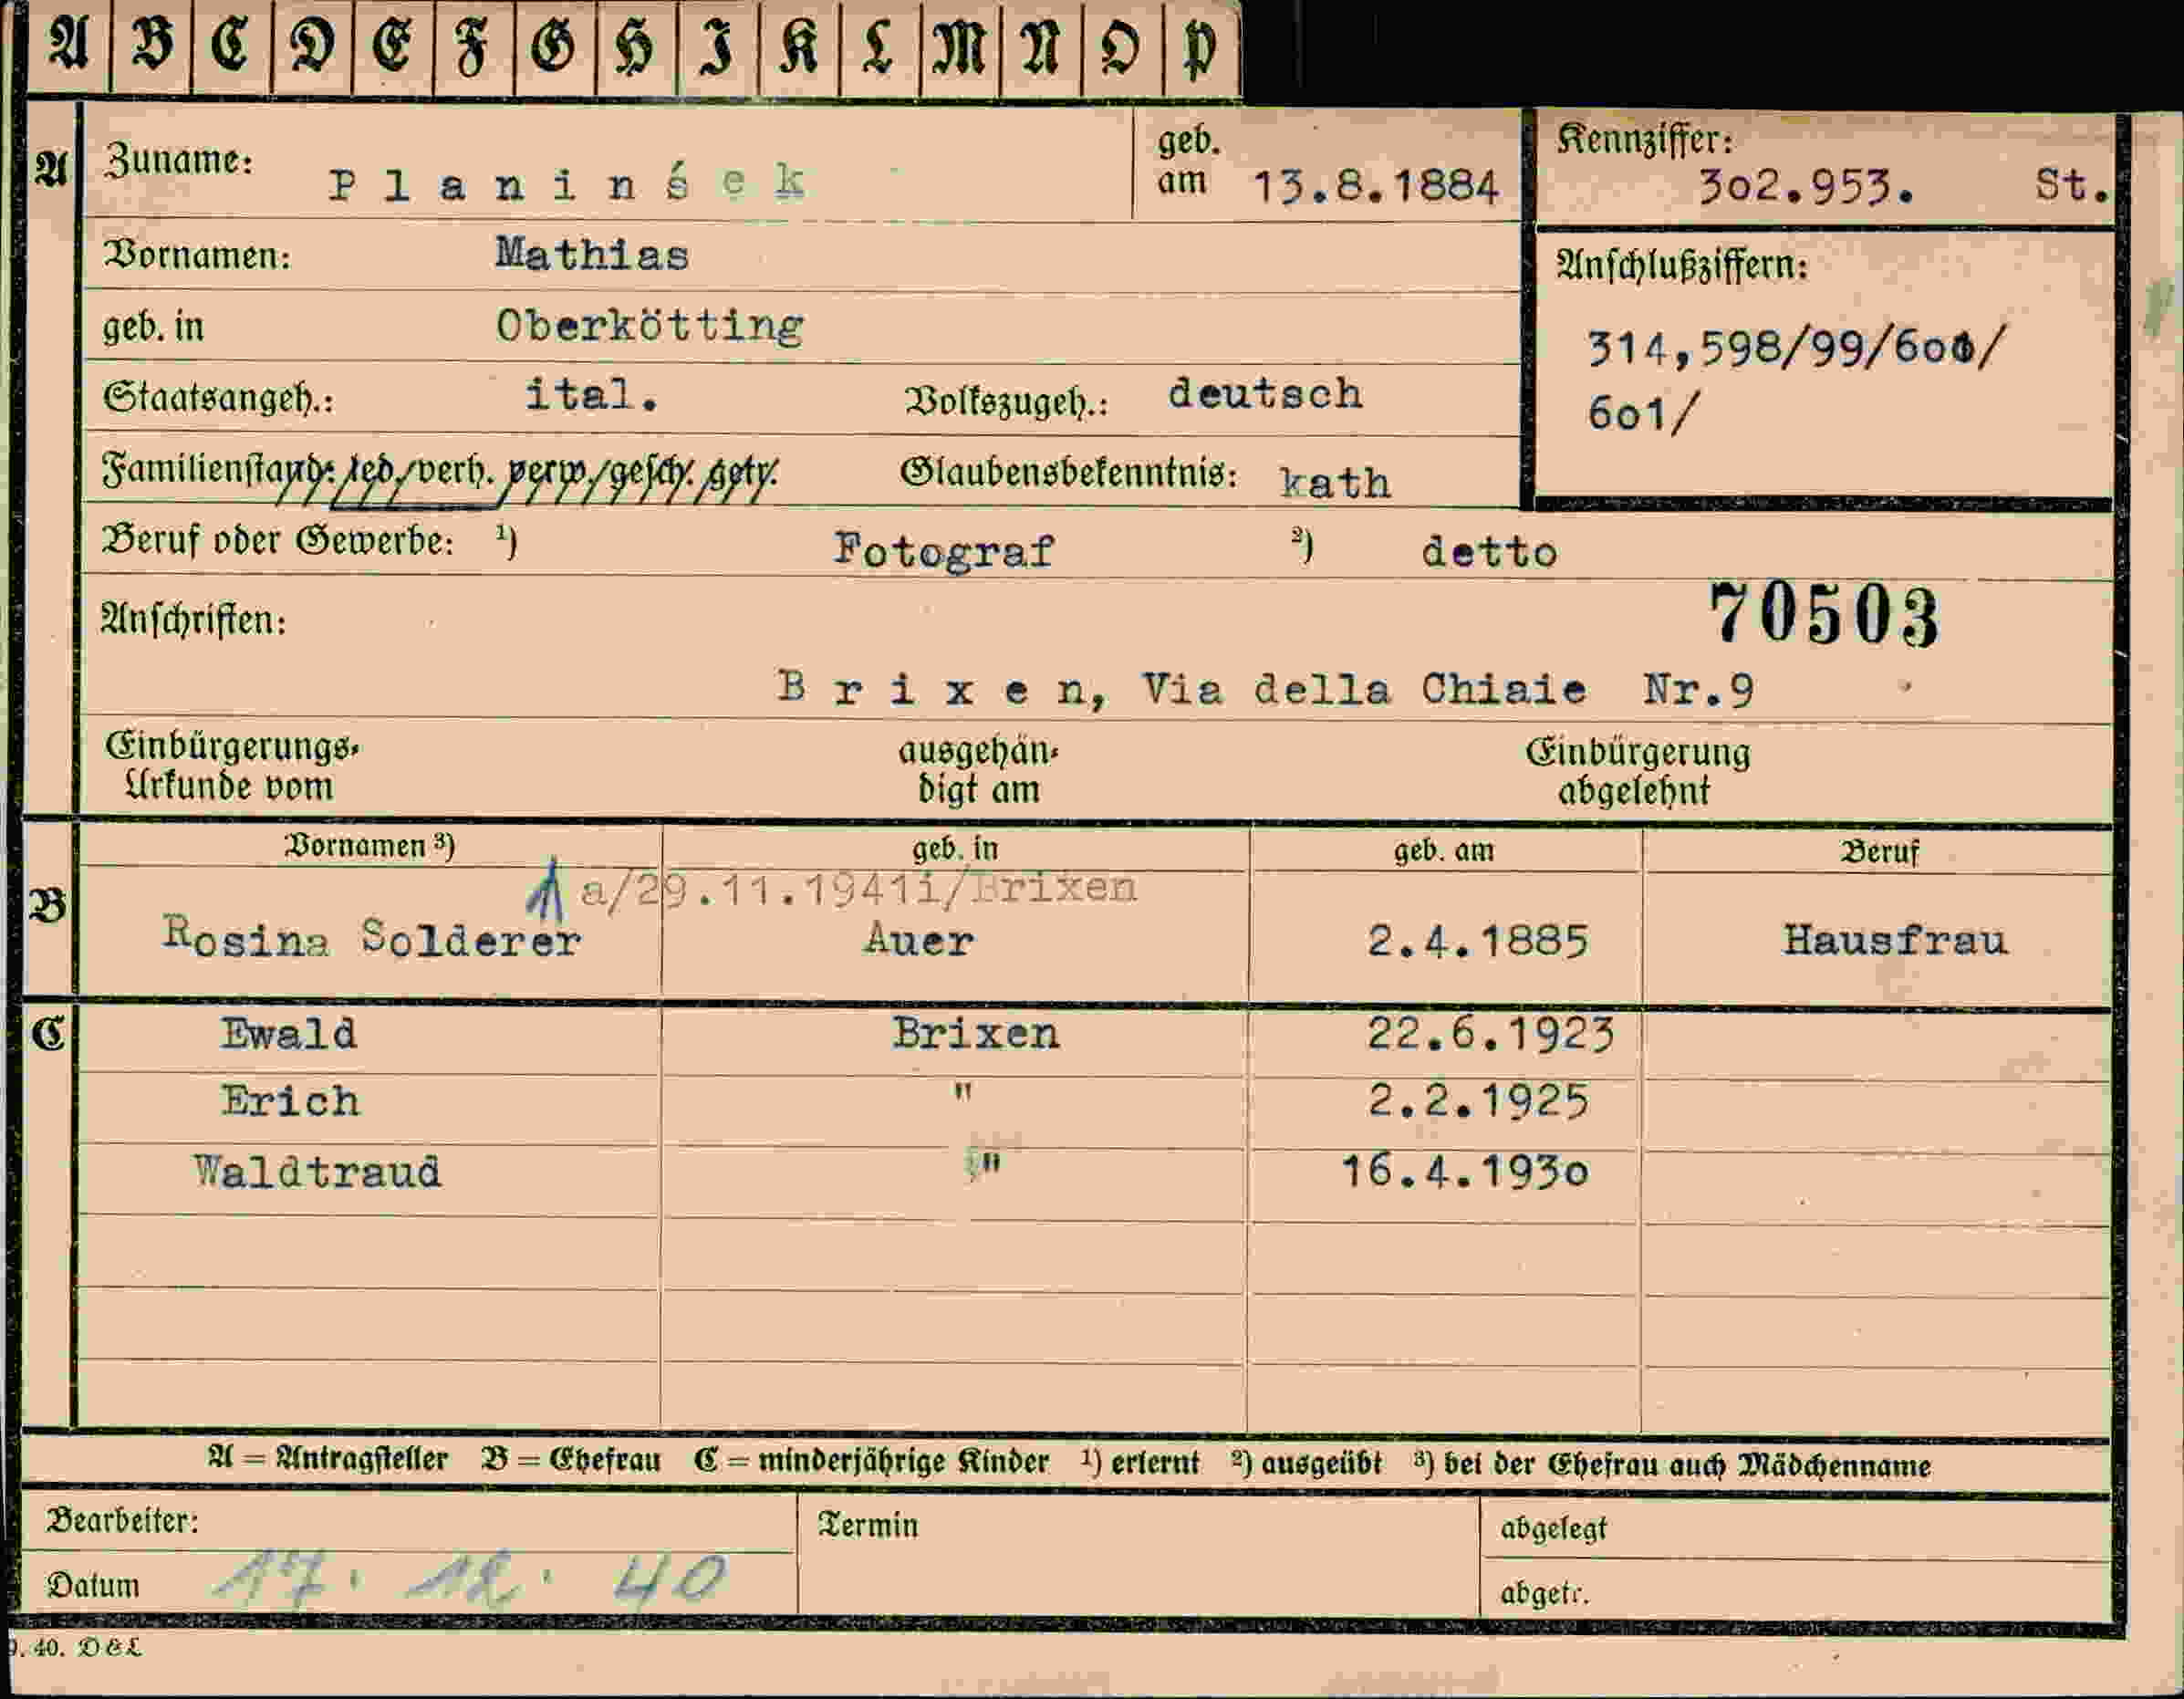 A B C D E F G H I K L M N O P
A Zuname: Planinśek geb. am 13.8.1884 Kennziffer: 3o2.953. St.
Vornamen: Mathias Anschlußziffern:
geb. in Oberkötting 314,598/99/6oo/
Staatsangeh.: ital. Volkszugeh.: deutsch 6o1/
Familienstand: led. verh. verw. gesch. getr. Glaubensbekenntnis: kath
Beruf oder Gewerbe: ¹) Fotograf ²) detto
Anschriften: 70503
Brixen, Via della Chiaie Nr.9
Einbürgerungs-Urkunde vom ausgehändigt am Einbürgerung abgelehnt
Vornamen ³) geb. in geb. am Beruf
a/29.11.1941i/Brixen
B Rosina Solderer Auer 2.4.1885 Hausfrau
C Ewald Brixen 22.6.1923
Erich " 2.2.1925
Waldtraud " 16.4.193o
A = Antragsteller B = Ehefrau C = minderjährige Kinder ¹) erlernt ²) ausgeübt ³) bei der Ehefrau auch Mädchenname
Bearbeiter: Termin abgelegt
Datum 17. 12. 40 abgetr.
9. 40. D&L